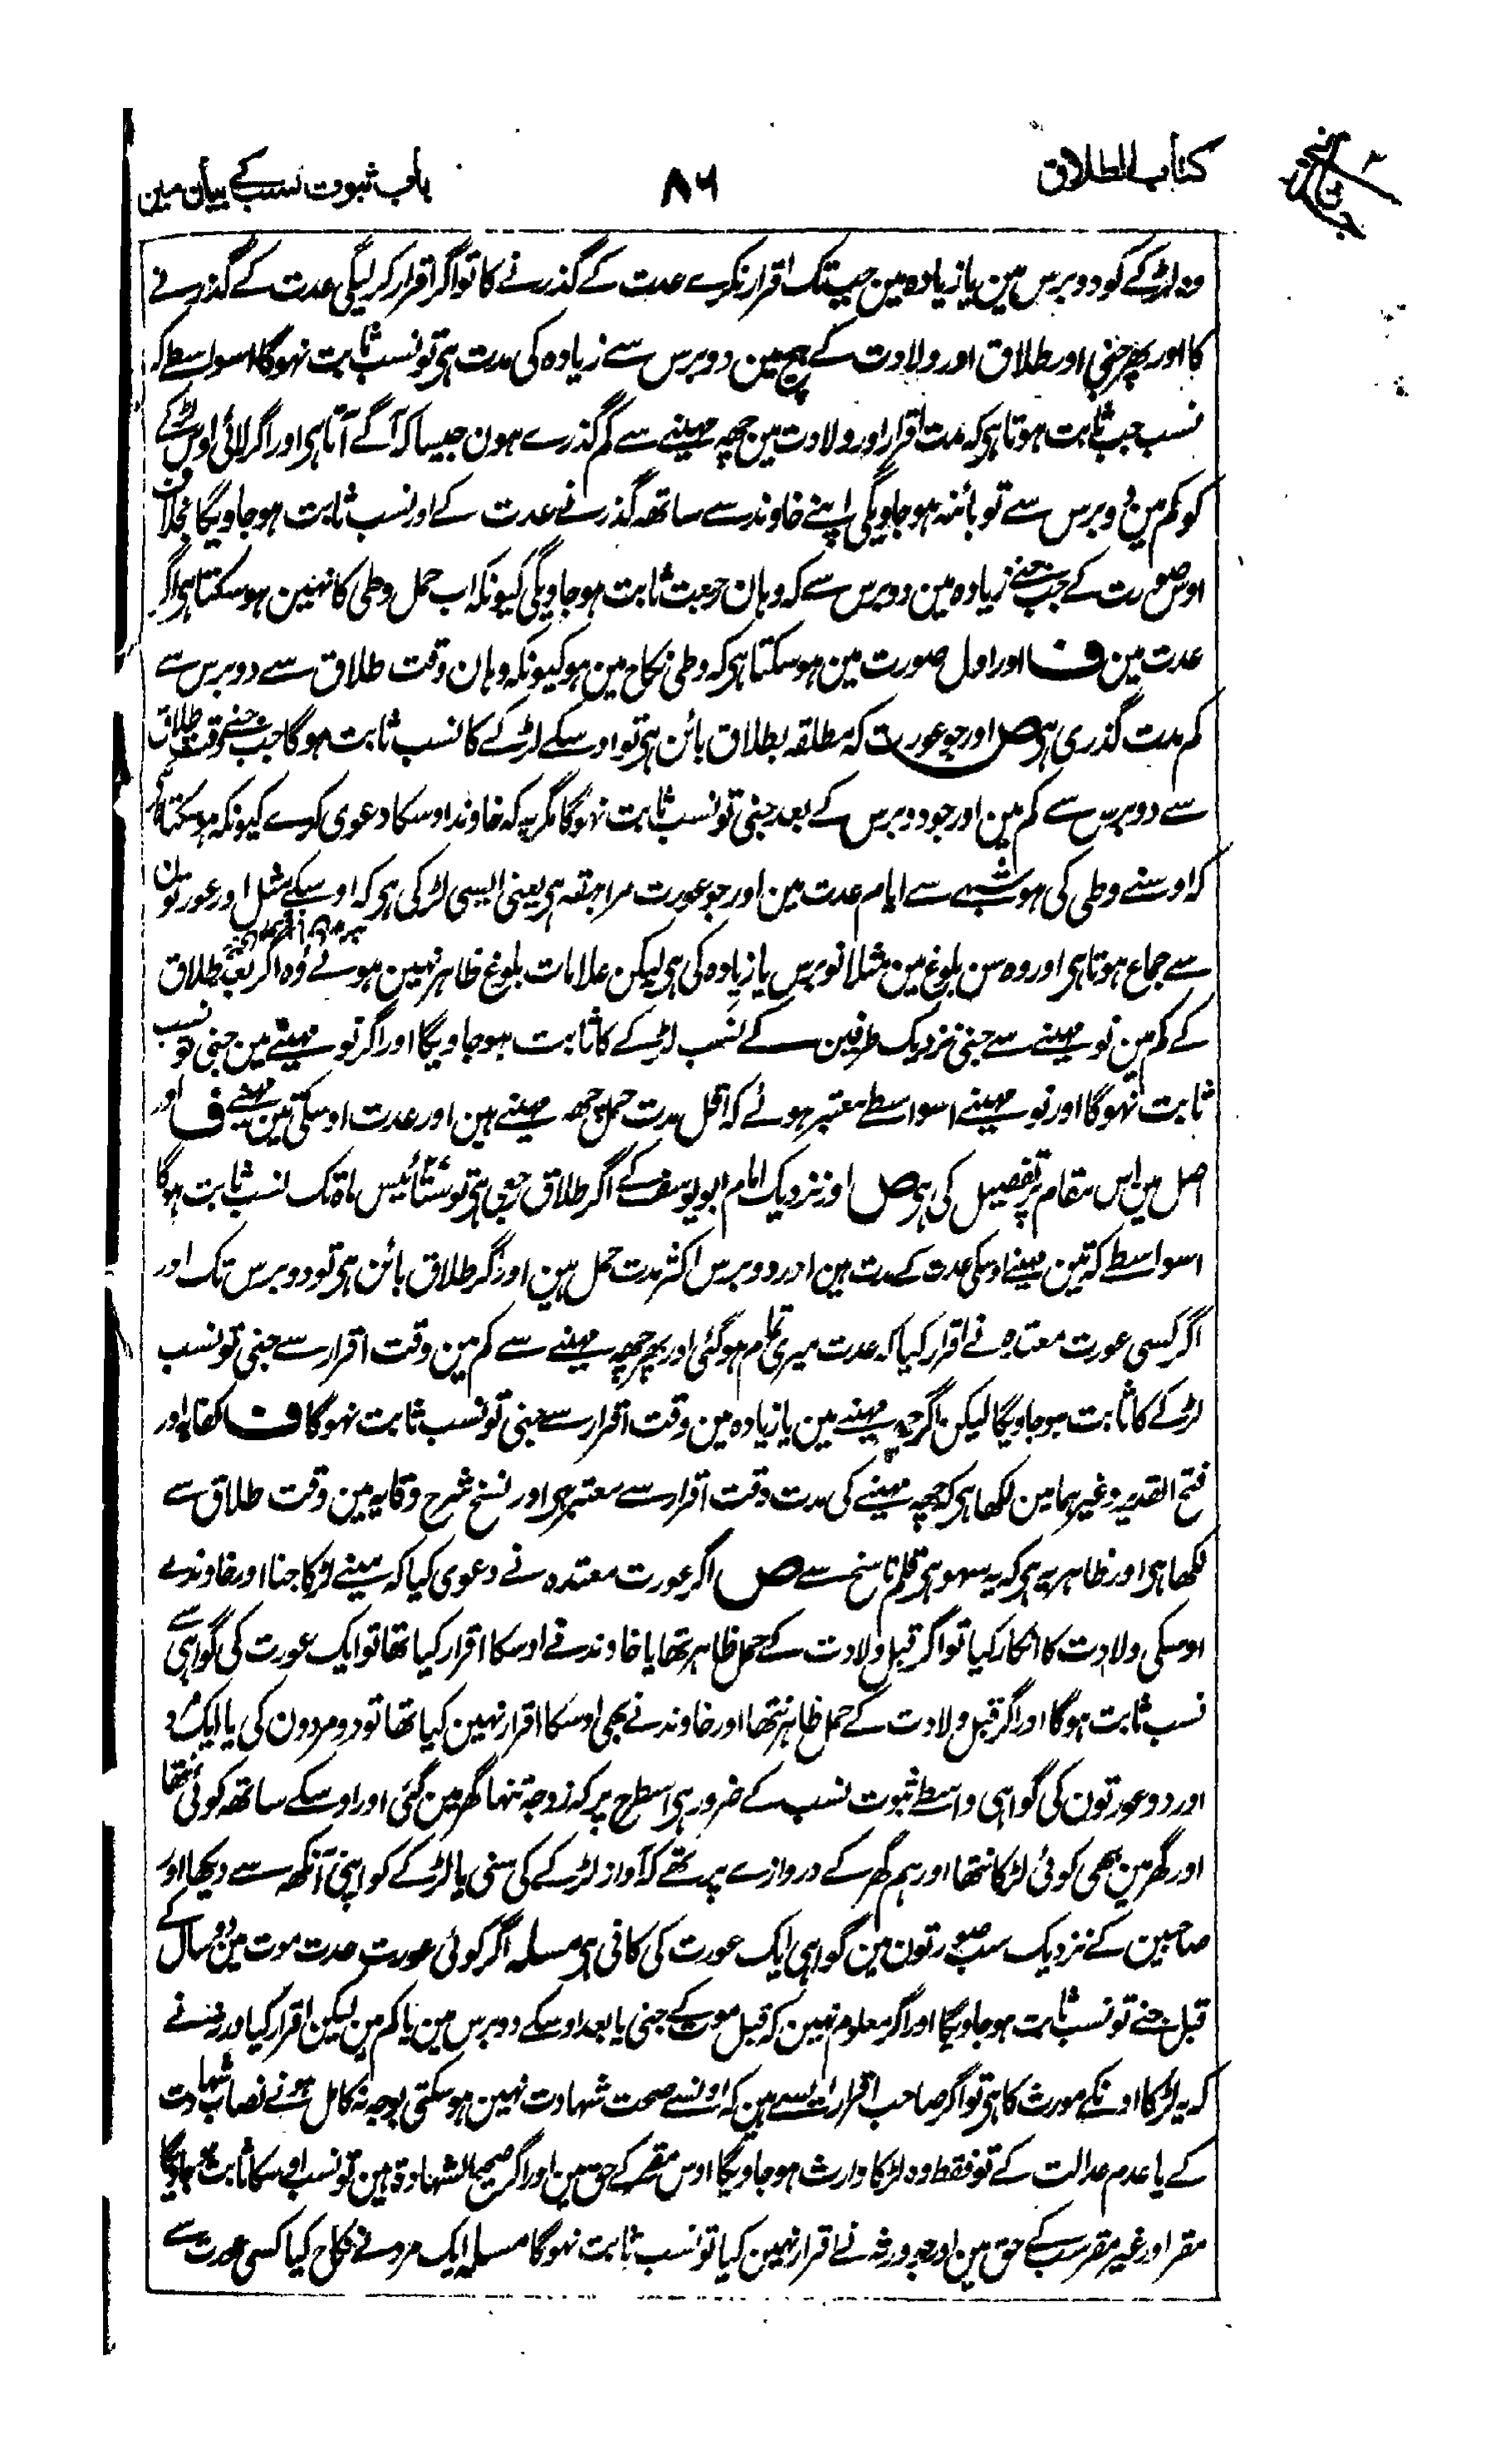 کتاب الطلاق
۸۶
باب ثبوت نسب کے بیان مین
وہ لڑکے کو دو برس مین یا زیادہ مین جبتک اقرار نکرے عدت کے گذرنے کا تو اگر اقرار کر لیگی عدت کے گذرنے
کا اور پھر جنی اور طلاق اور ولادت کے بیچ مین دو برس سے زیادہ کی مدت ہی تو نسب ثابت نہوگا اسواسطے کہ
نسب جب ثابت ہوتا ہی کہ مدت اقرار اور ولادت مین چھہ مہینے سے کم گذرے ہون جیسا کہ آگے آتا ہی اور اگر لائی اوس لڑکے
کو کم مین دو برس سے تو بائنہ ہو جاویگی اپنے خاوند سے ساتھہ گذرنے عدت کے اور نسب ثابت ہو جاویگا بخلاف
اوس صورت کے جب جنے زیادہ مین دو برس سے کہ وہان رجعت ثابت ہو جاویگی کیونکہ اب حمل وطی کا نہین ہو سکتا ہی اگر
عدت مین ف اور اول صورت مین ہو سکتا ہی کہ وطی نکاح مین ہو کیونکہ وہان وقت طلاق سے دو برس سے
کم مدت گذری ہی ص اور جو عورت کہ مطلقہ بطلاق بائن ہی تو اوسکے لڑکے کا نسب ثابت ہوگا جب جنے وقت طلاق
سے دو برس سے کم مین اور جو دو برس کے بعد جنی تو نسب ثابت نہوگا مگر یہ کہ خاوند اوسکا دعوی کرے کیونکہ ہو سکتا ہی
کہ اوسنے وطی کی ہو شبہے سے ایام عدت مین اور جو عورت مراہقہ ہی یعنی ایسی لڑکی ہی کہ اوسکے مثل اور عورتون
سے جماع ہوتا ہی اور وہ سن بلوغ مین مثلا نو برس یا زیادہ کی ہی لیکن علامات بلوغ ظاہر نہین ہوئے وہ اگر بعد طلاق
کے کم مین نو مہینے سے جنی نزدیک طرفین کے نسب لڑکے کا ثابت ہو جاویگا اور اگر نو مہینے مین جنی تو نسب
ثابت نہوگا اور نو مہینے اسواسطے معتبر ہوئے کہ اقل مدت حمل چھہ مہینے ہین اور عدت اوسکی تین مہینے ف اور
اصل مین اس مقام پر تفصیل کی ہی ص اور نزدیک امام ابو یوسف کے اگر طلاق رجعی ہی تو ستائیس ماہ تک نسب ثابت ہوگا
اسواسطے کہ تین مہینے اوسکی عدت کے مدت ہین اور دو برس اکثر مدت حمل ہین اور اگر طلاق بائن ہی تو دو برس تک اور
اگر کسی عورت معتدہ نے اقرار کیا کہ عدت میری تمام ہو گئی اور پھر چھہ مہینے سے کم مین وقت اقرار سے جنی تو نسب
لڑکے کا ثابت ہو جاویگا لیکن اگر چھہ مہینے مین یا زیادہ مین وقت اقرار سے جنی تو نسب ثابت نہوگا ف کفایہ اور
فتح القدیر وغیرہما مین لکھا ہی کہ چھہ مہینے کی مدت وقت اقرار سے معتبر ہی اور نسخ شرح وقایہ مین وقت طلاق سے
لکھا ہی اور ظاہر یہ ہی کہ یہ سہو ہی قلم ناسخ سے ص اگر عورت معتدہ نے دعوی کیا کہ مینے لڑکا جنا اور خاوند نے
اوسکی ولادت کا انکار کیا تو اگر قبل ولادت کے حمل ظاہر تھا یا خاوند نے اوسکا اقرار کیا تھا تو ایک عورت کی گواہی سے
نسب ثابت ہوگا اور اگر قبل ولادت کے حمل ظاہر نتھا اور خاوند نے بھی اوسکا اقرار نہین کیا تھا تو دو مردون کی یا ایک مرد
اور دو عورتون کی گواہی واسطے ثبوت نسب کے ضرور ہی اسطرح پر کہ زوجہ تنہا گھر مین گئی اور اوسکے ساتھہ کوئی نتھا
اور گھر مین بھی کوئی لڑکا نتھا اور ہم گھر کے دروازے پر تھے کہ آواز لڑکے کی سنی یا لڑکے کو اپنی آنکھہ سے دیکھا اور
صاحبین کے نزدیک سب صورتون مین گواہی ایک عورت کی کافی ہی مسلہ اگر کوئی عورت عدت موت مین دو سال کے
قبل جنے تو نسب ثابت ہو جاویگا اور اگر معلوم نہین کہ قبل موت کے جنی یا بعد اوسکے دو برس مین یا کم مین لیکن اقرار کیا ورثہ نے
کہ یہ لڑکا اونکے مورث کا ہی تو اگر صاحب اقرار ایسے ہین کہ اونسے صحت شہادت نہین ہو سکتی بوجہ نہ کامل ہونے نصاب شہادت
کے یا عدم عدالت کے تو فقط وہ لڑکا وارث ہو جاویگا اوس مقر کے حق مین اور اگر صحیح الشہادۃ ہین تو نسب اوسکا ثابت ہو جاویگا
مقر اور غیر مقر سب کے حق مین اور جو ورثہ نے اقرار نہین کیا تو نسب ثابت نہوگا مسلہ ایک مرد نے نکاح کیا کسی عورت سے